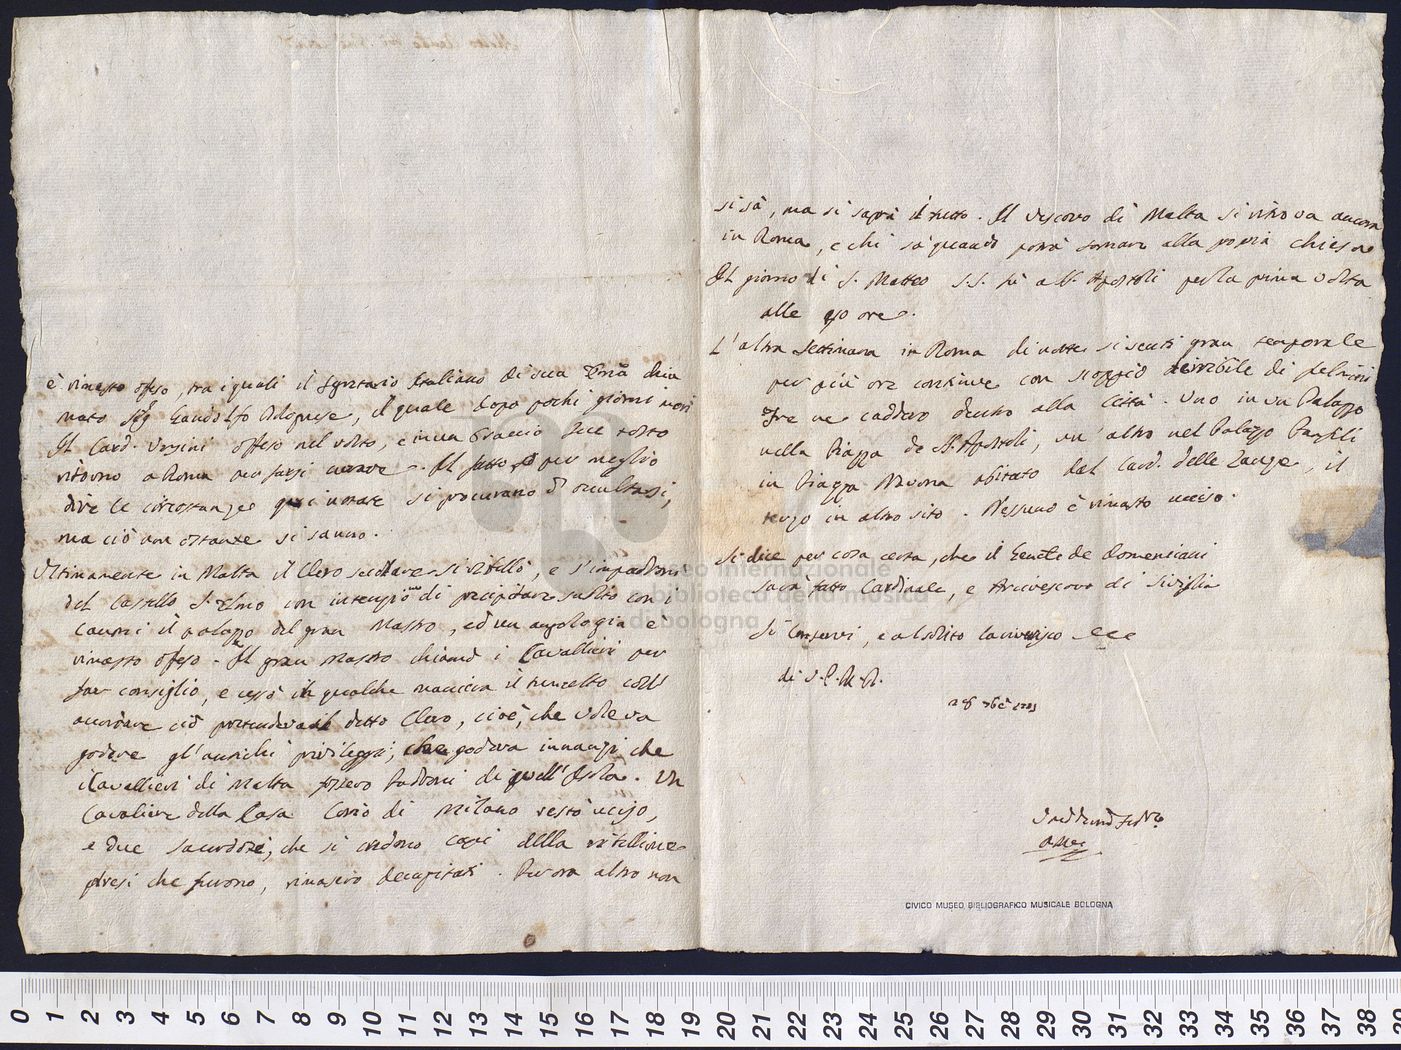 è rimasto offeso, tra i quali il Segretario Italiano di sua chia
mato Sig Gandolfo Bolognese, il quale dopo pochi giorni morì
Il Card. Orsini offeso nel volto, e in un braccio fece tosto
ritorno a Roma per farsi curare. Il fatto, o per meglio
dire le circostanze si procurano d' occultarsi,
ma ciò non ostante si sanno.
Ultimamente in Malta il Clero secolare si ribellò, e s'impadronì
del Castello S. Elmo con intenzione di precipitare subito con i
cannoni il palazzo del gran Mastro, ed un è
rimasto offeso. Il gran Mastro chiamò i Cavallieri per
far consiglio, e cessò in qualche maniera il tumulto coll'
accordare ciò pretendeva il detto Clero, cioè, che voleva
godere gl'antichi privileggi, che godeva innanzi che
i Cavallieri di Malta fossero Padroni di quell'Isola. Un
Cavaliere della Casa di Milano restò ucciso,
e due sacerdoti, che si credono capi della ribellione
presi che furono, rimasero decapitati. Per ora altro non
si sà, ma si saprà il tutto. Il Vescovo di Malta si ritrova ancora
in Roma, e chi sà quando potrà tornare alla propria chiesa
Il giorno di S. Matteo S.S. fù a SS. Apostoli per la prima volta
alle ore.
L'altra Settimana in Roma di notte si sentì gran temporale
per più ore continue con scoppio terribile di fulmini
Tre ne caddero dentro alla Città. Uno in un Palazzo
nella Piazza de SS. Apostoli, un' altro nel Palazzo Panfili
in Piazza Navona abitato dal Card. delle Lanze, il
terzo in altro sito. Nessuno è rimasto ucciso.
Si dice per cosa certa, che il de Domenicani
sarà fatto Cardinale, e Arcivescovo di Siviglia
Si conservi, e al solito la riverisco
di V.P.M.R.
28 7bre 1775
CIVICO MUSEO BIBLIOGRAFICO MUSICALE BOLOGNA
museo internazionale
e biblioteca della musica
di bologna
0 1 2 3 4 5 6 7 8 9 10 11 12 13 14 15 16 17 18 19 20 21 22 23 24 25 26 27 28 29 30 31 32 33 34 35 36 37 38 39